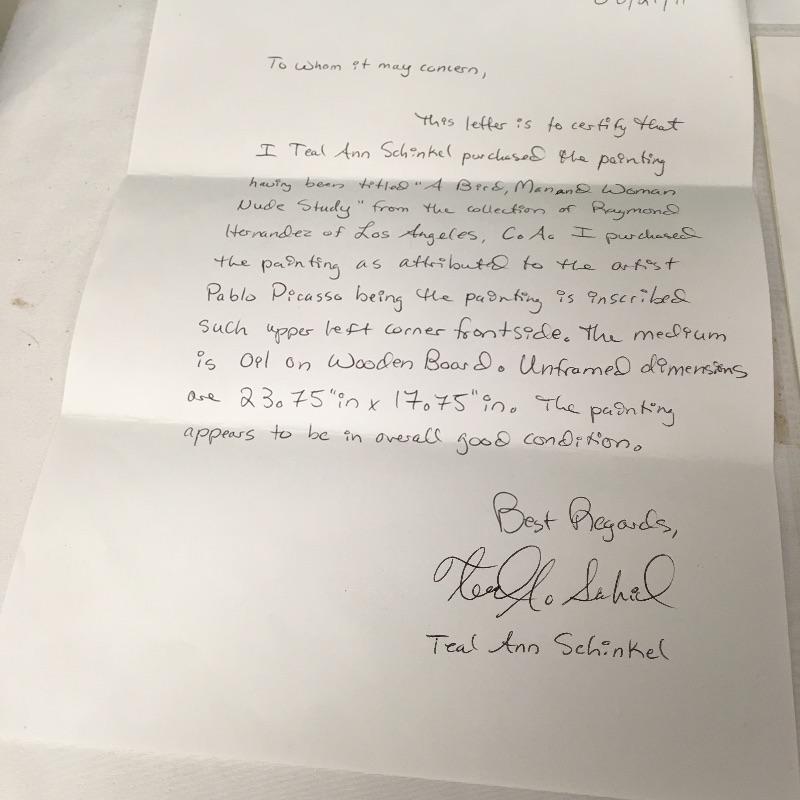 To whom it may concern,
This letter is to certify that
I Teal Ann Schinkel purchased the painting
having been titled "A Bird, Man and Woman
Nude Study" from the collection of Raymond
Hernandez of Los Angeles, C.A. I purchased
the painting as attributed to the artist
Pablo Picasso being the painting is inscribed
such upper left corner frontside. The medium
is Oil on Wooden Board. Unframed dimensions
are 23.75"in x 17.75"in. The painting
appears to be in overall good condition.
Best Regards,
Teal Ann Schinkel